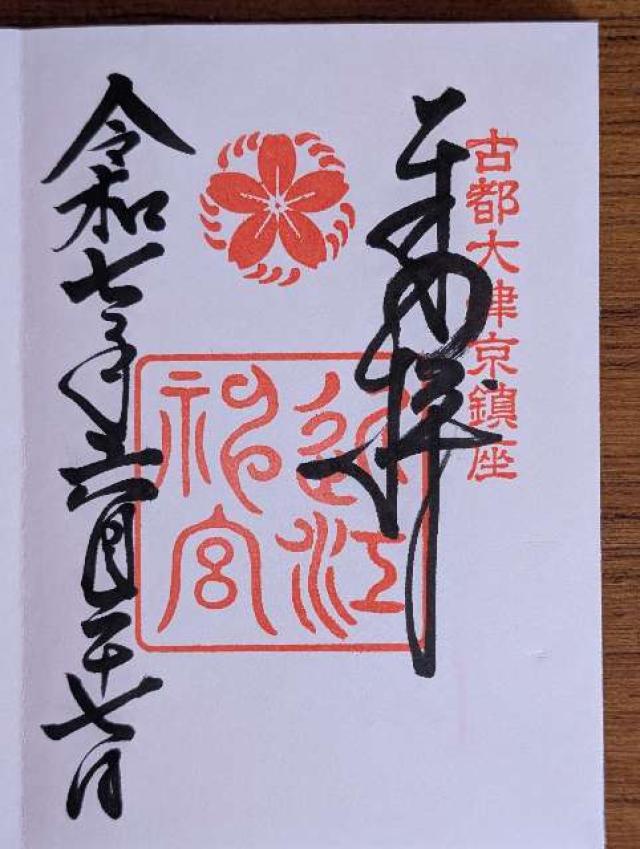 古都大津京鎮座
奉拝
近江
神宮
令和七年六月二十七日